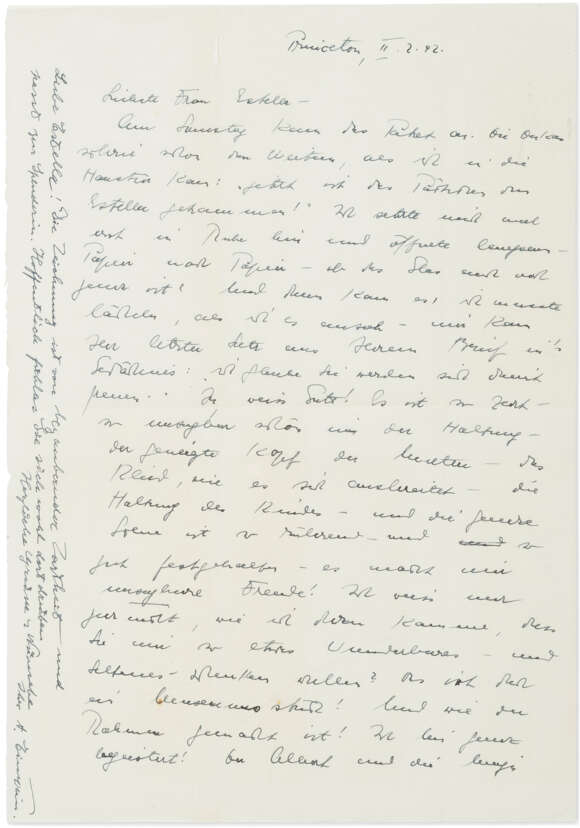 Princeton, II. 2. 42.
Liebste Frau Estella –
Am Samstag kam das Paket an. Die
schrie schon von Weitem, als ich in die
Haustür kam: "jetzt ist das Päckchen von
Estella gekommen!" Ich setzte mich mal
erst in Ruhe hin und öffnete langsam –
Papier nach Papier – ob das Glas auch noch
ganz ist! Und dann kam es! Ich musste
lächeln, als ich es ansah – mir kam
Ihr letzter Satz aus Ihrem Brief in's
Gedächtnis: ich glaube Sie werden sich damit
freuen. Es ist so zart –
so unsagbar schön in der Haltung –
der geneigte Kopf der Mutter – das
Kleid, wie es sich ausbreitet – die
Haltung des Kindes – und die ganze
Scene ist so rührend – und so
gut festgehalten – es macht mir
unsagbare Freude! Ich weiss nur
gar nicht, wie ich dazu komme, dass
Sie mir so etwas Wunderbares – und
Seltenes – schenken wollen? Das ist doch
ein Museumsstück! Und wie der
Rahmen gemacht ist! Ich bin ganz
begeistert! Der Albert und die
Liebe Estella! Die Zeichnung ist von bezaubernder Zartheit und
passt zur Spenderin. Hoffentlich fühlen Sie sich wohl dort drüben
Herzliche Grüsse u Wünsche
Ihr A. Einstein.